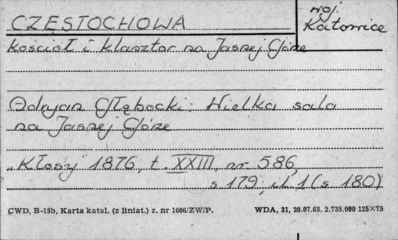 CZĘSTOCHOWA
woj. Katowice
Kościół i klasztor na Jasnej Górze
Adryan Głębocki: Wielka sala
na Jasnej Górze
"Kłosy" 1876, t. XXIII, nr 586,
s 179, il. 1 (s 180)
CWD, B-15b, Karta katal. (z liniat.) z. nr 1686/ZW/P. WDA, 31, 20.07.65. 2.735.000 125×75